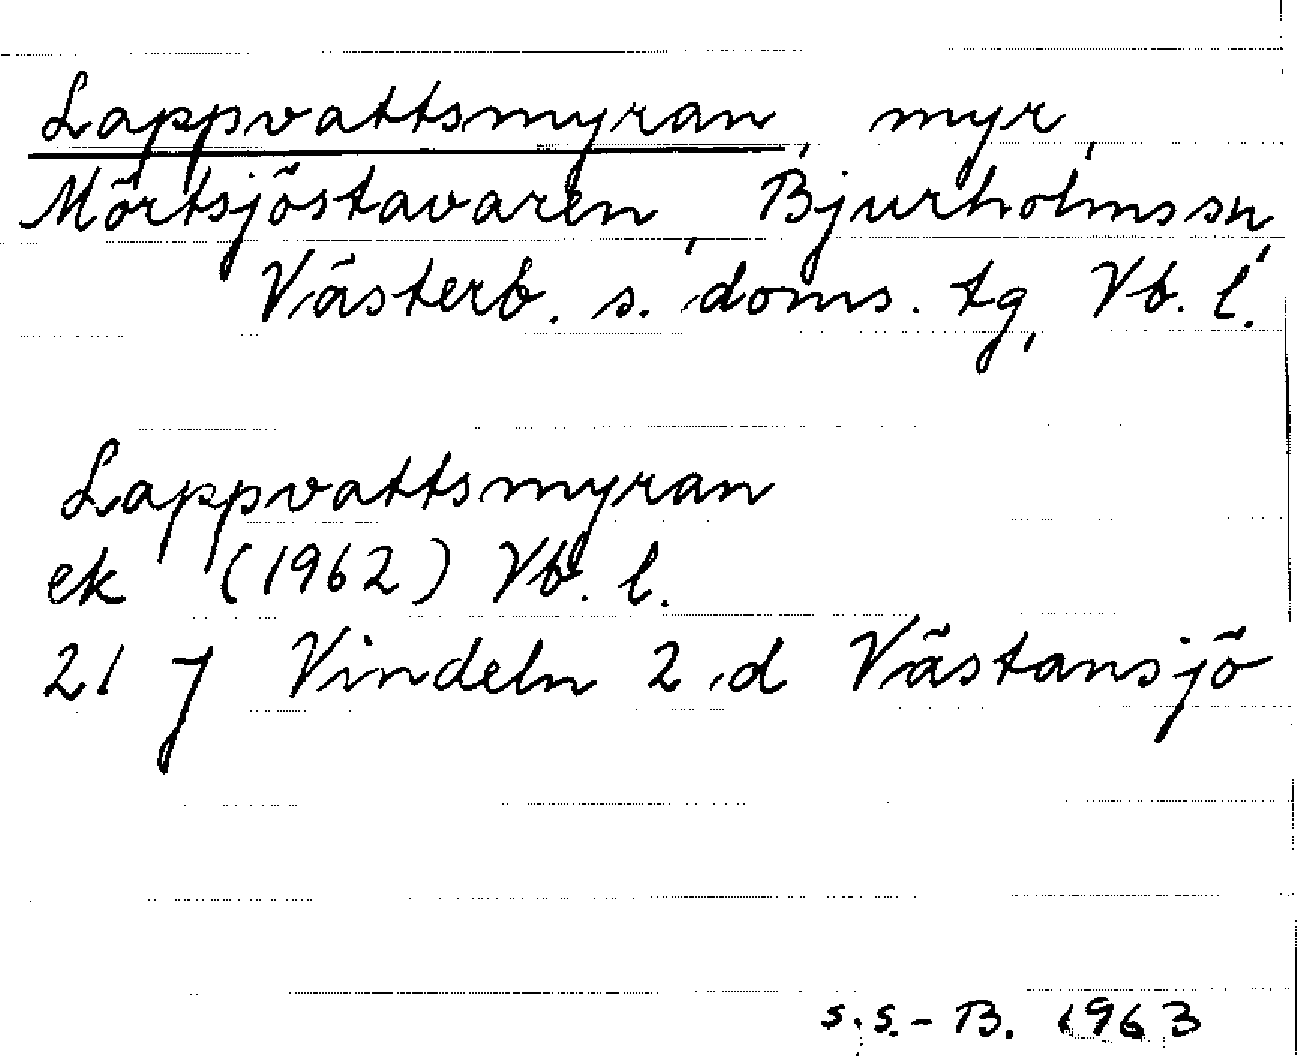 Lappvattsmyran, myr,
Mörtsjöstavaren, Bjurholms sn,
Västerb. s. doms. tg, Vb. l.
Lappvattsmyran
ek (1962) Vb. l.
21 J Vindeln 2 d Västansjö
S.S.-B. 1963